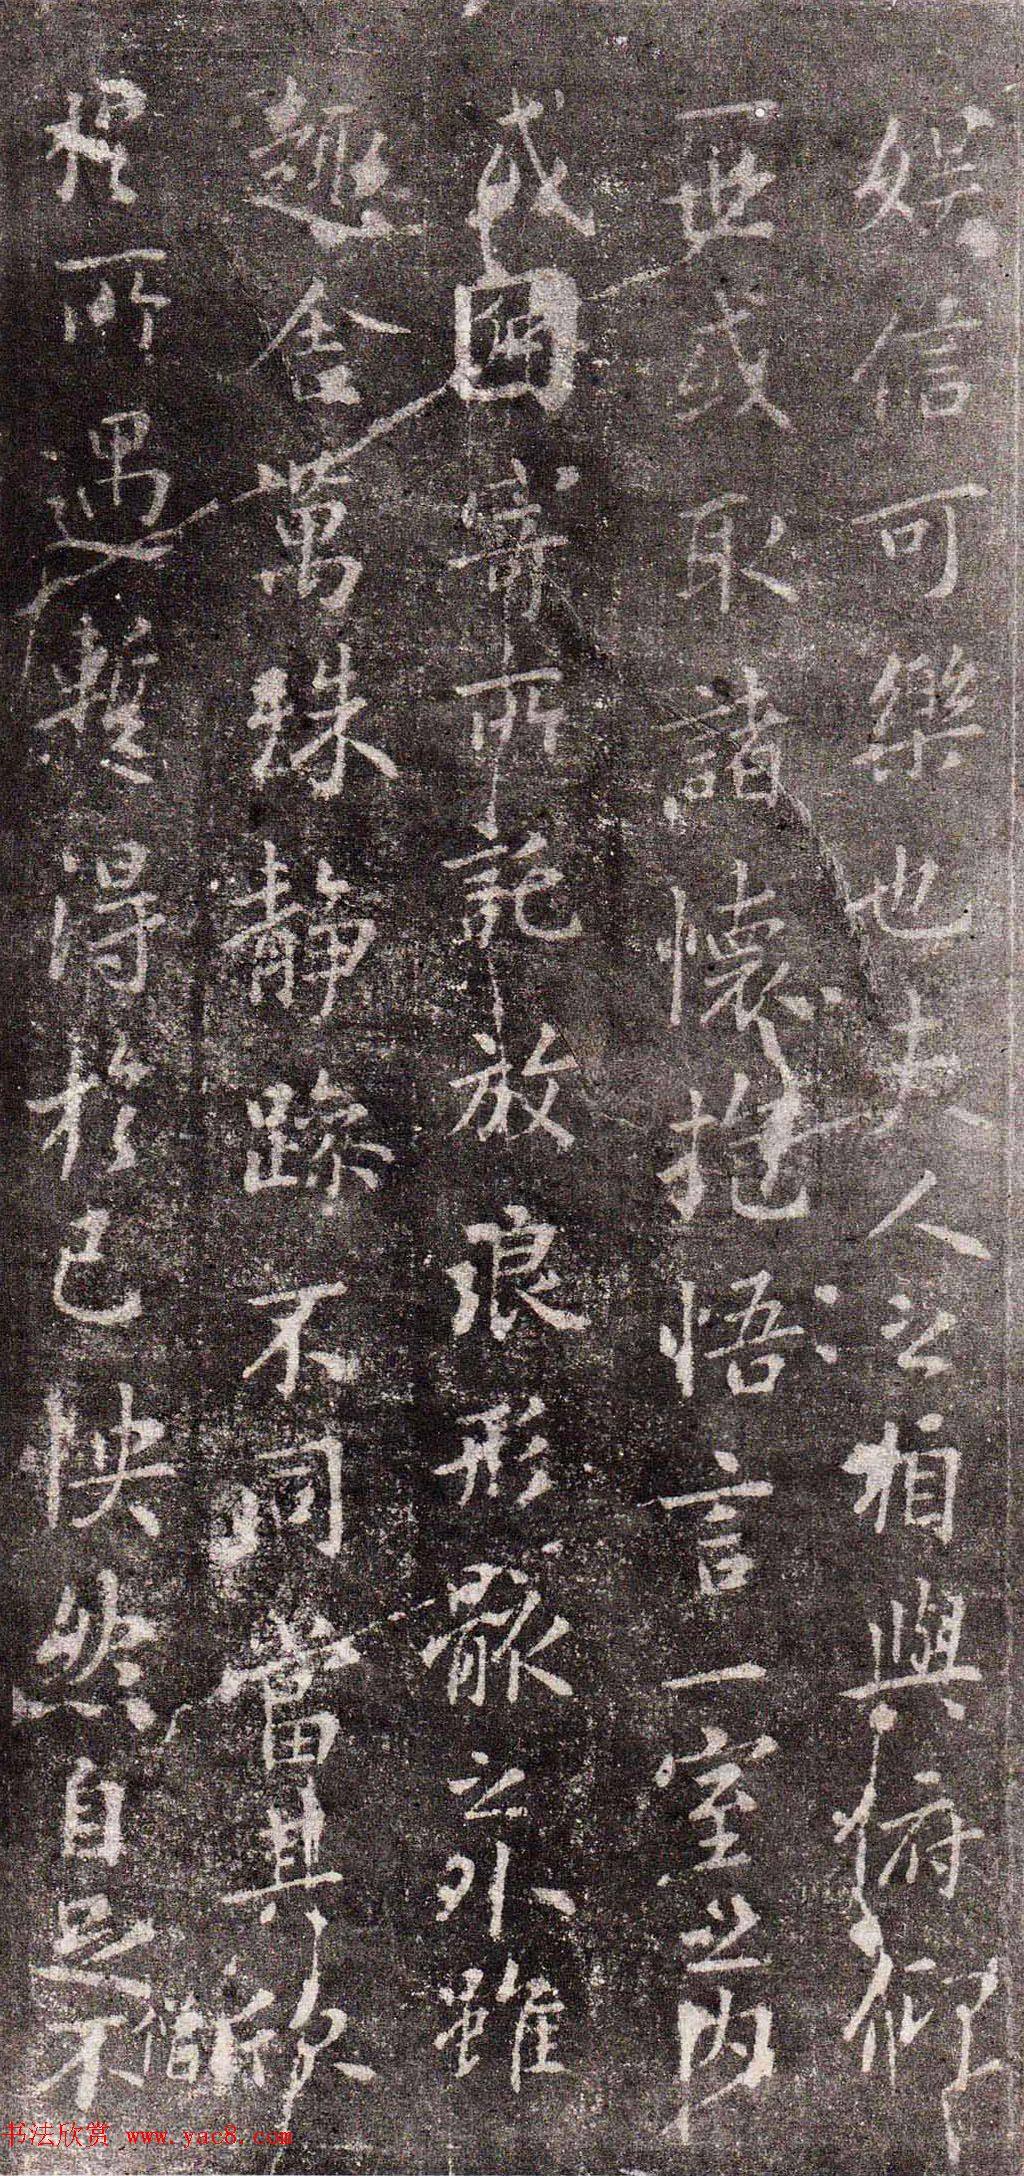 娛信可樂也夫人之相與俯仰
一世或取諸懷抱悟言一室之內
或因寄所託放浪形骸之外雖
趣舍萬殊靜躁不同當其欣
於所遇暫得於己怏然自足不
僧
书法欣赏 www.yac8.com